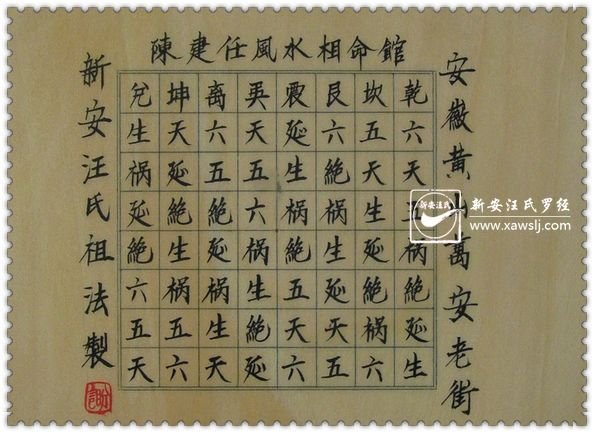 陳建任風水相命舘
安徽黃山萬安老街
乾六天五祸絕延生
坎五天生延絕祸六
艮六絕祸生延天五
震延生祸絕五天六
巽天五六祸生絕延
离六五絕延祸生天
坤天延絕生祸五六
兌生祸延絕六五天
新安汪氏祖法製
新安汪氏
新安汪氏罗径
www.xawslj.com